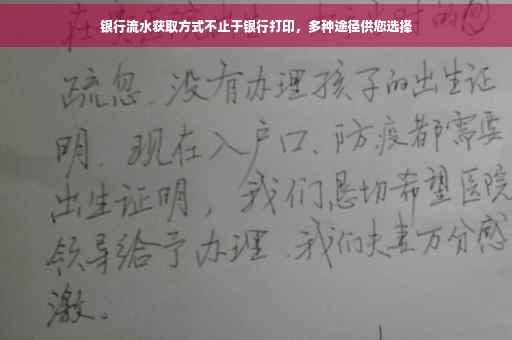 银行流水获取方式不止于银行打印，多种途径供您选择
疏忽、没有办理孩子的出生证
明、现在入户口、防疫都需要
出生证明，我们恳切希望医院
领导给予办理、我们夫妻万分感
激。